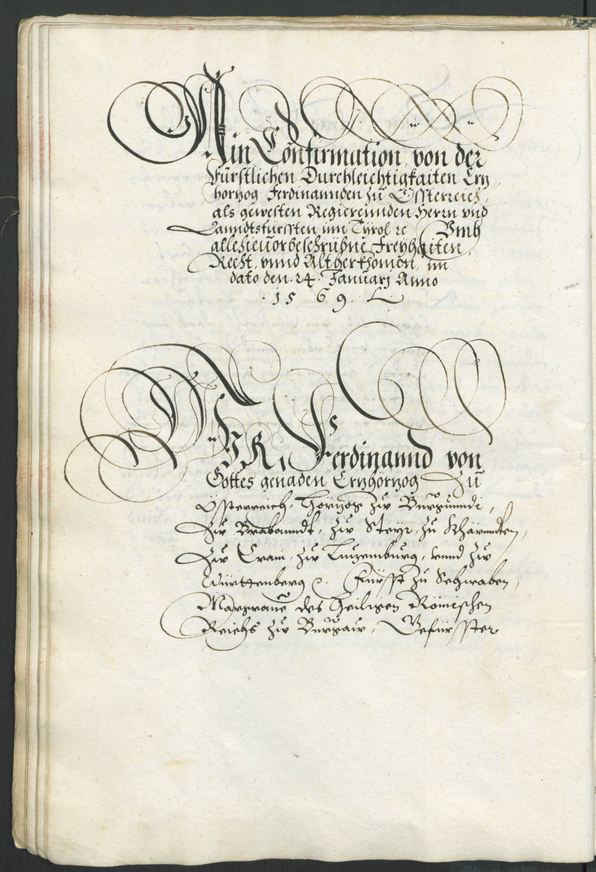 Ain Confirmation von der
Fürstlichen Durchleichtigkaiten Ertz
hörtzog Ferdinannden zu Össterreich
als gewesten Regiereunden Herrn vnd
Lanndtsfürssten inn Tyrol ꝛc Vmb
alle hieuorbeschribne Freyhaiten
Recht, vnnd Altherkhomen, im
dato den 24. Januarj Anno
. 1 5 6 9 .
WIR Ferdinannd von
Gottes genaden Ertzhörtzog Zu
Össterreich, Hörtzog zu Burgunndi,
Zu Brabanndt, zu Steyr, zu Khärnndten,
Zu Crain, zu Lutzemburg, vnnd zu
Württemberg ꝛc. Fürsst zu Schwaben,
Marggraue des Heiligen Römischen
Reichs zu Burgaw, Gefürsster